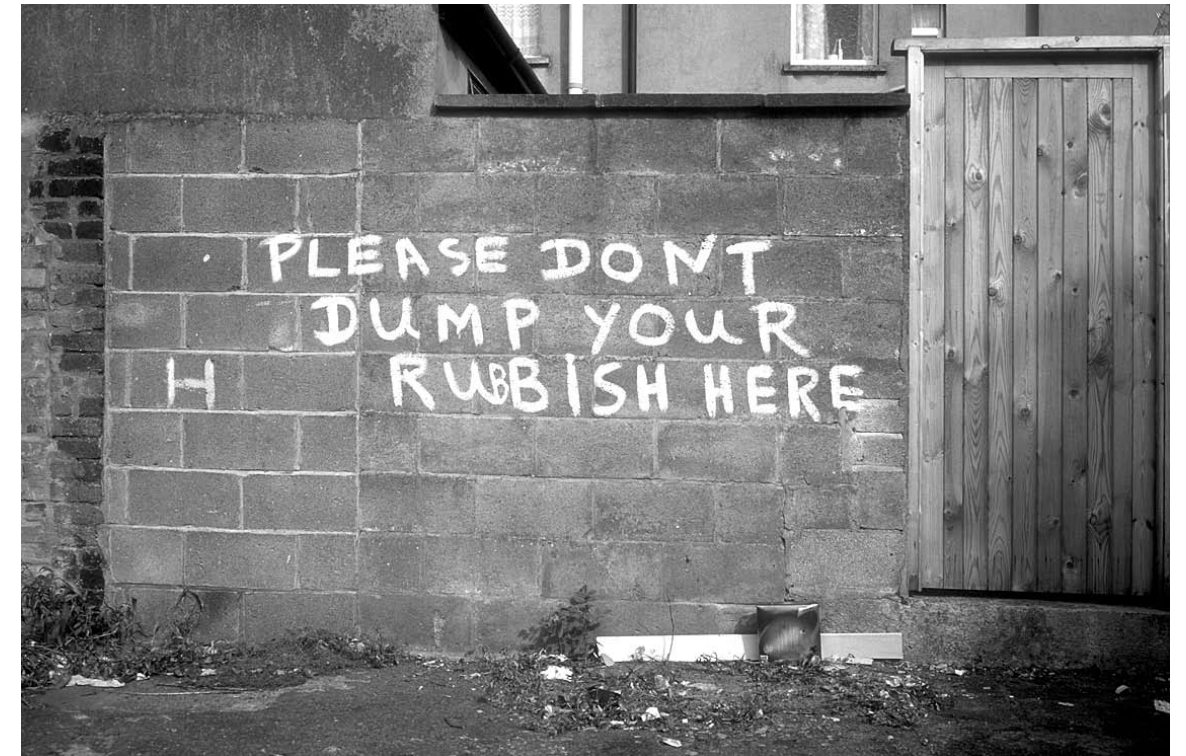 PLEASE DONT
DUMP YOUR
H RUBBISH HERE